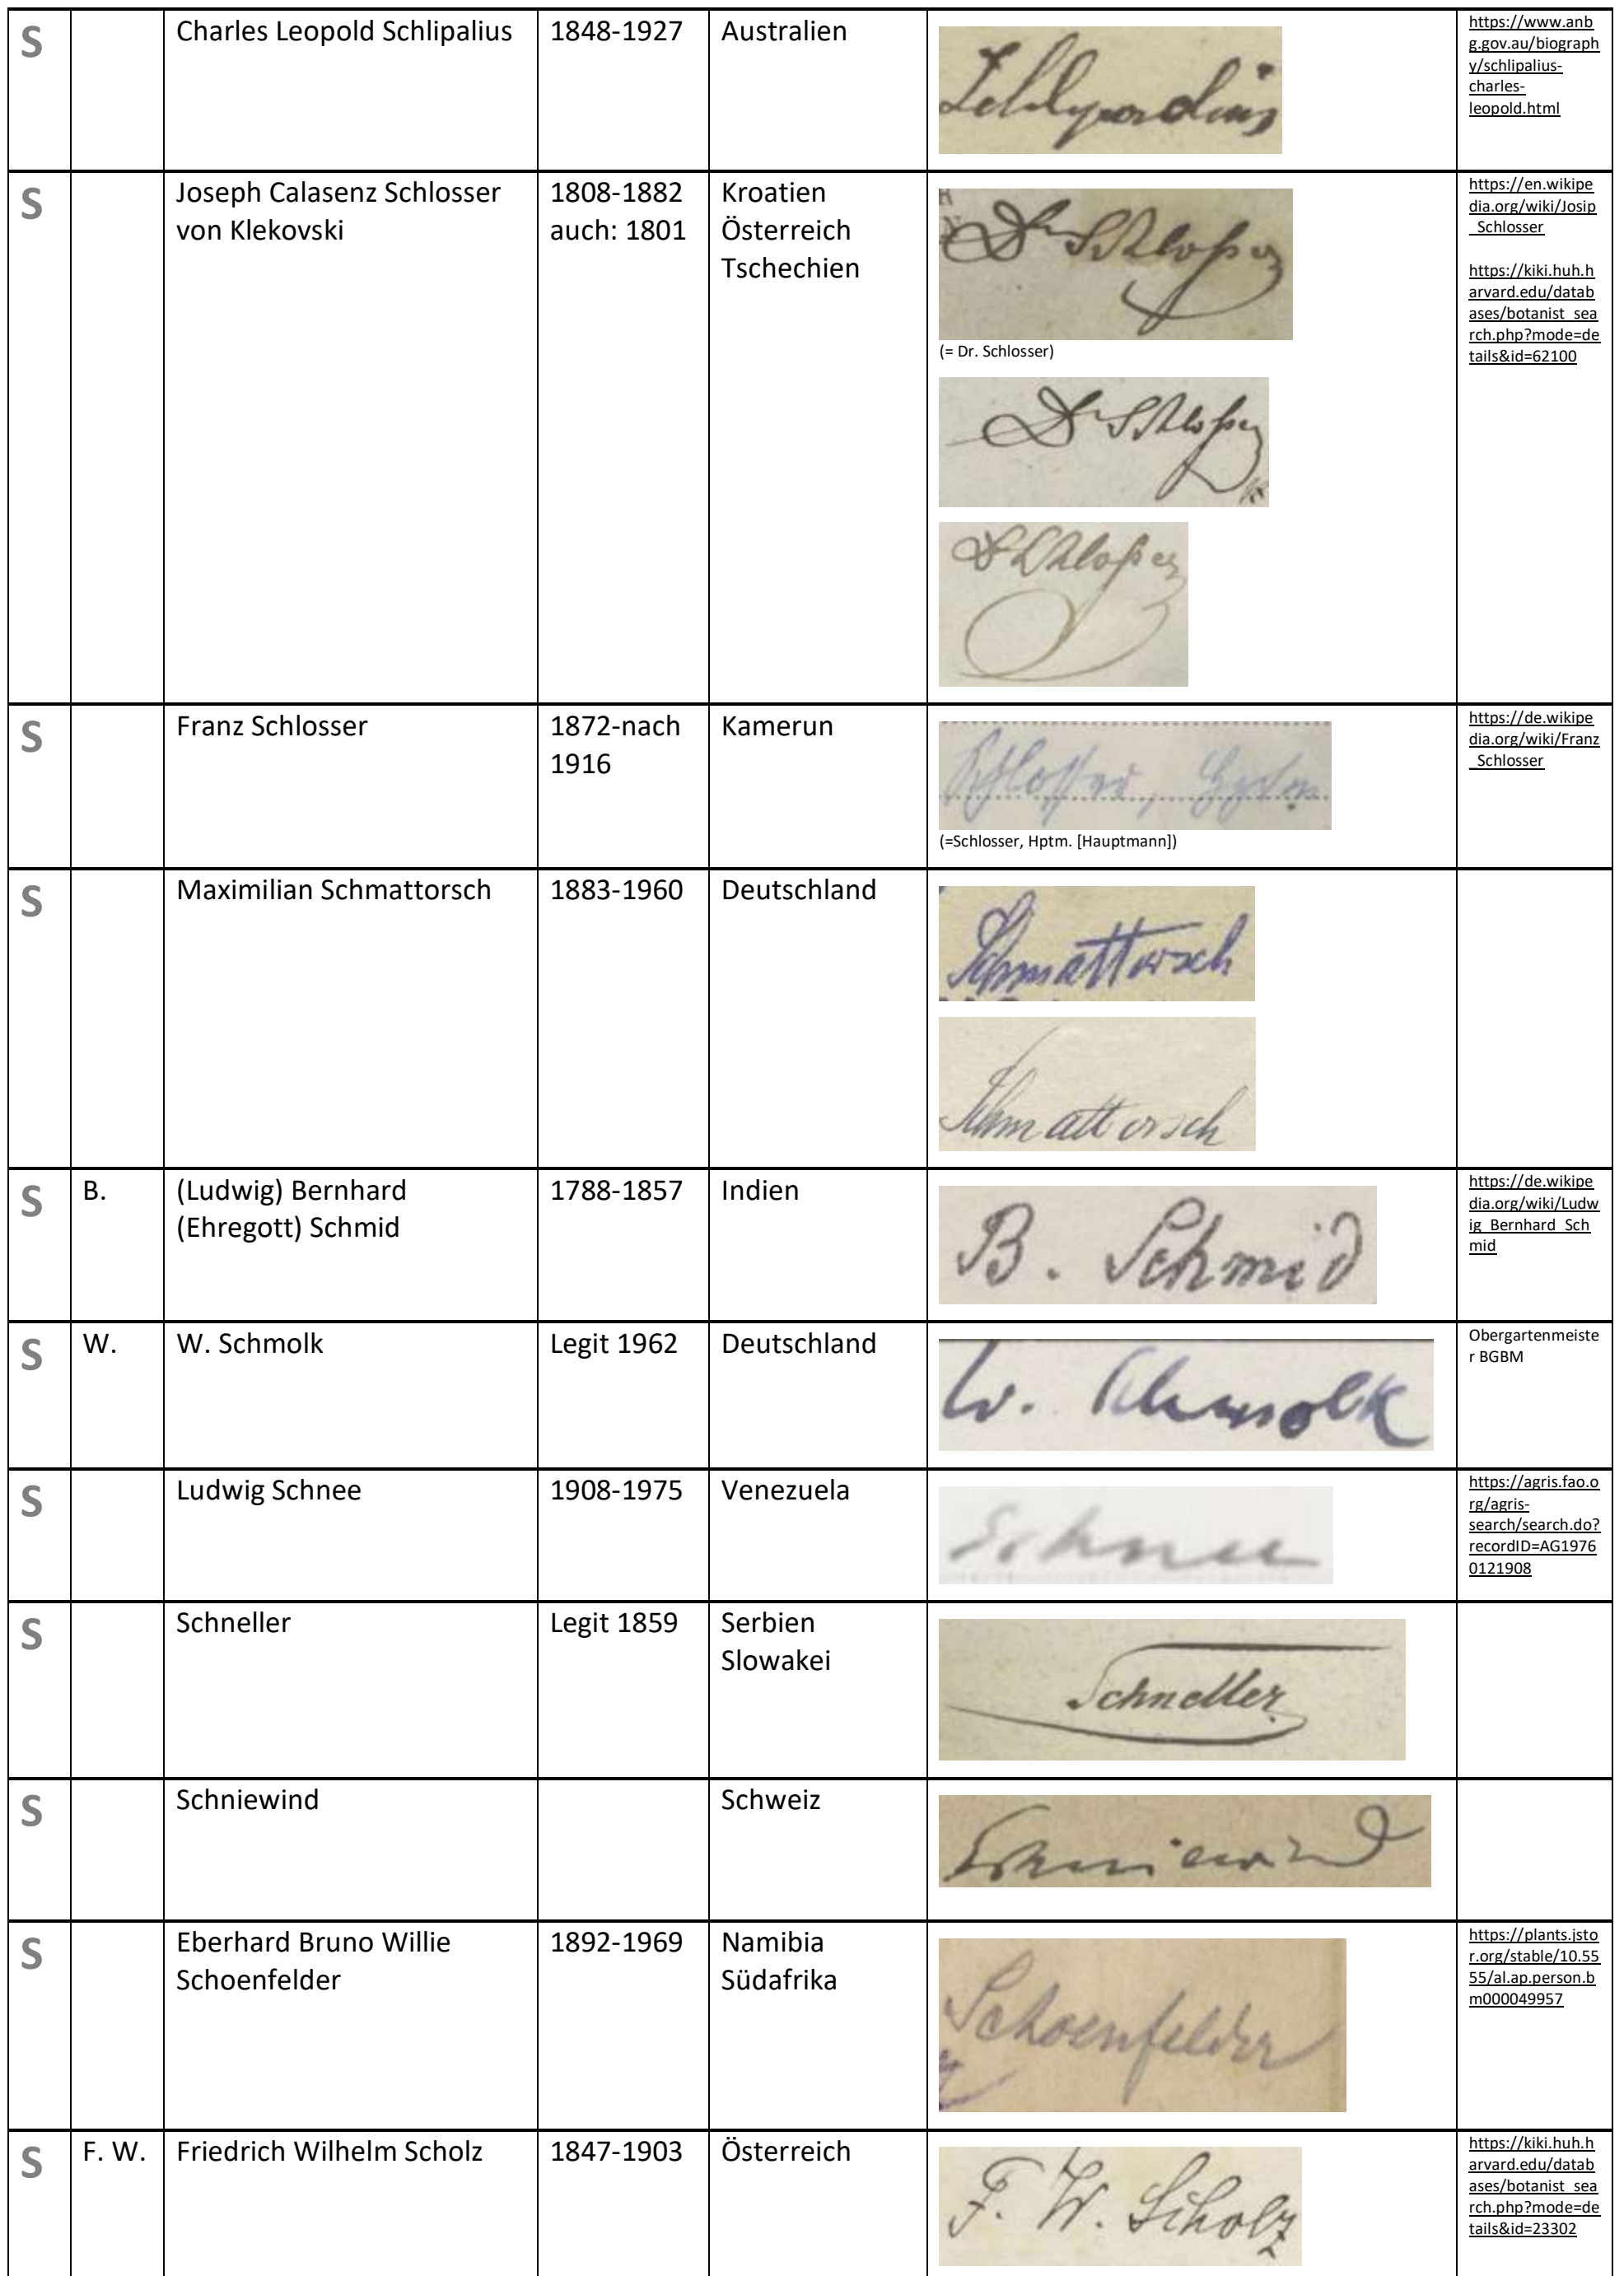 S
Charles Leopold Schlipalius
1848-1927
Australien
Schlipalius
https://www.anb
g.gov.au/biograph
y/schlipalius-
charles-
leopold.html
S
Joseph Calasenz Schlosser
von Klekovski
1808-1882
auch: 1801
Kroatien
Österreich
Tschechien
Dr Schloßer
(= Dr. Schlosser)
Dr Schloßer
Dr Schloßer
https://en.wikipe
dia.org/wiki/Josip
_Schlosser
https://kiki.huh.h
arvard.edu/datab
ases/botanist_sea
rch.php?mode=de
tails&id=62100
S
Franz Schlosser
1872-nach
1916
Kamerun
Schlosser, Hptm.
(=Schlosser, Hptm. [Hauptmann])
https://de.wikipe
dia.org/wiki/Franz
_Schlosser
S
Maximilian Schmattorsch
1883-1960
Deutschland
Schmattorsch
Schmattorsch
S
B.
(Ludwig) Bernhard
(Ehregott) Schmid
1788-1857
Indien
B. Schmid
https://de.wikipe
dia.org/wiki/Ludw
ig_Bernhard_Sch
mid
S
W.
W. Schmolk
Legit 1962
Deutschland
W. Schmolk
Obergartenmeiste
r BGBM
S
Ludwig Schnee
1908-1975
Venezuela
Schnee
https://agris.fao.o
rg/agris-
search/search.do?
recordID=AG1976
0121908
S
Schneller
Legit 1859
Serbien
Slowakei
Schneller
S
Schniewind
Schweiz
Schniewind
S
Eberhard Bruno Willie
Schoenfelder
1892-1969
Namibia
Südafrika
Schoenfelder
https://plants.jsto
r.org/stable/10.55
55/al.ap.person.b
m000049957
S
F. W.
Friedrich Wilhelm Scholz
1847-1903
Österreich
F. W. Scholz
https://kiki.huh.h
arvard.edu/datab
ases/botanist_sea
rch.php?mode=de
tails&id=23302